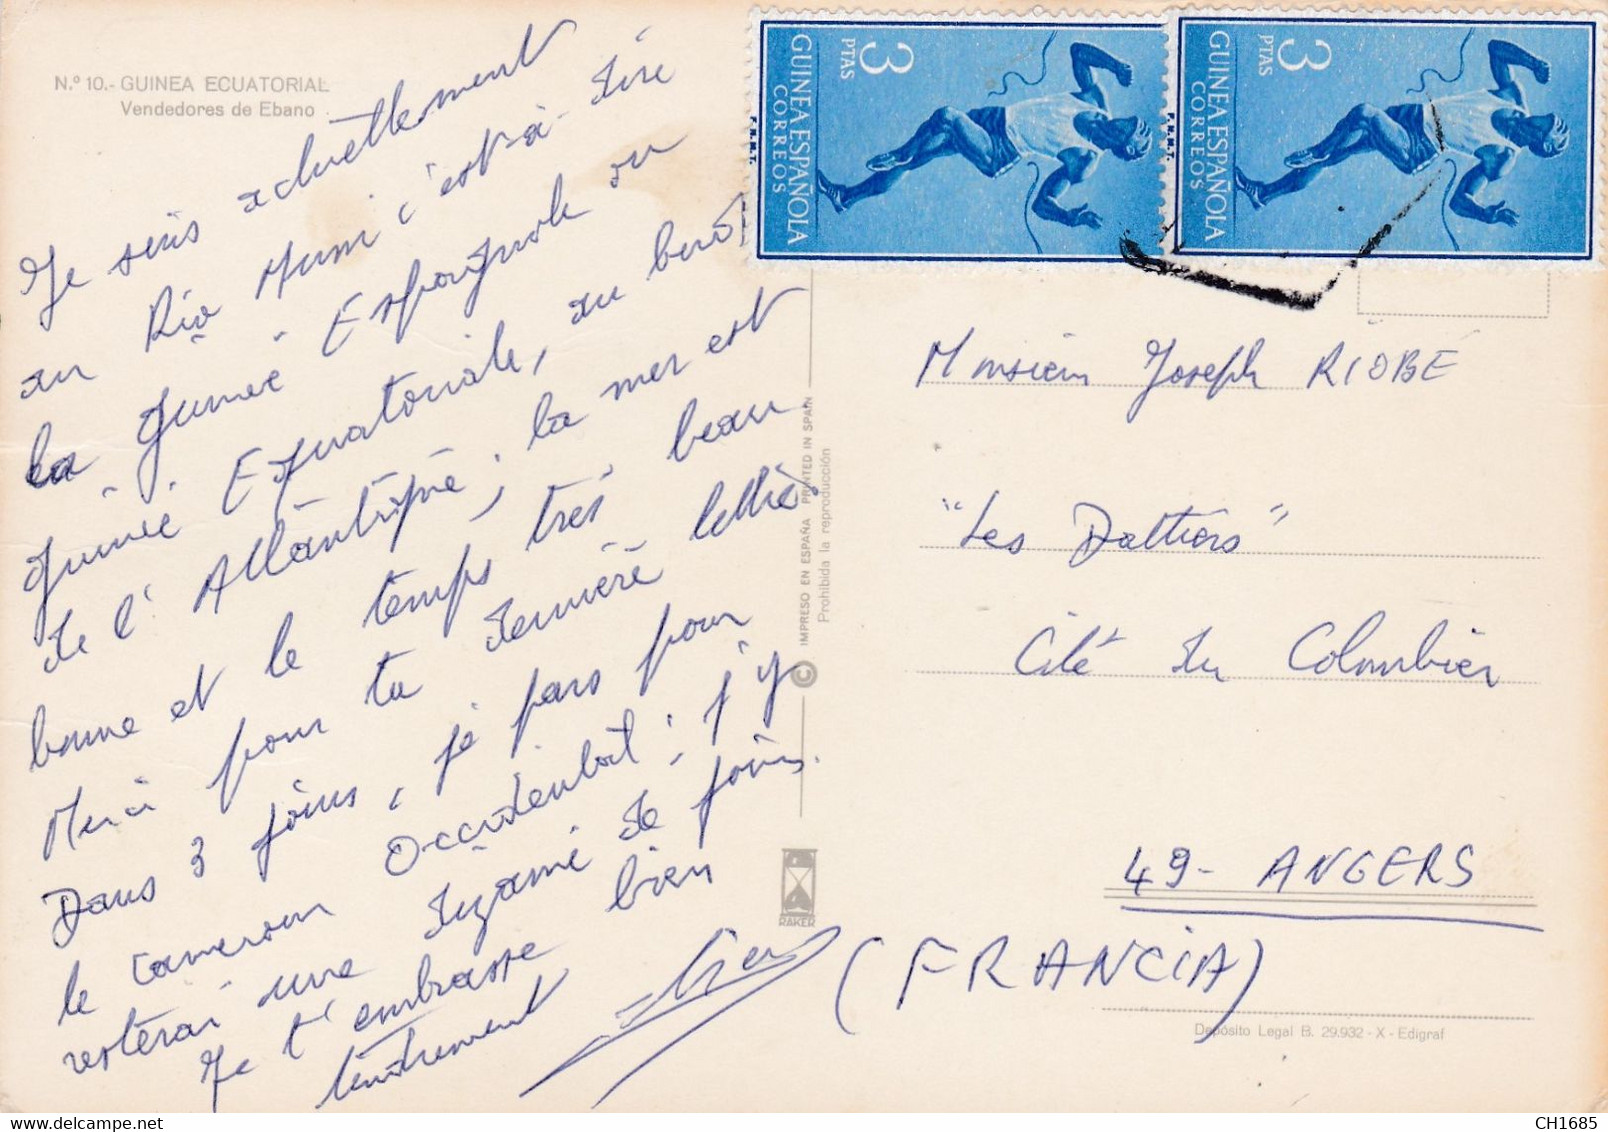 N.º 10.- GUINEA ECUATORIAL
Vendedores de Ebano
Je suis actuellement
au Rio Muni c'est-à-dire
la Guinée Espagnole ou
Guinée Equatoriale, au bord
de l'Atlantique ; la mer est
bonne et le temps très beau
Merci pour ta dernière lettre,
Dans 3 jours, je pars pour
le Cameroun Occidental ; j'y
resterai une dizaine de jours.
Je t'embrasse bien
tendrement
3 PTAS
GUINEA ESPAÑOLA
CORREOS
F.N.M.T.
3 PTAS
GUINEA ESPAÑOLA
CORREOS
F.N.M.T.
© IMPRESO EN ESPAÑA PRINTED IN SPAIN
Prohibida la reproducción
RAKER
Monsieur Joseph RIOBÉ
"Les Dattiers"
Cité du Colombier
49 - ANGERS
(FRANCIA)
Depósito Legal B. 29.932 - X - Edigraf
CH1685